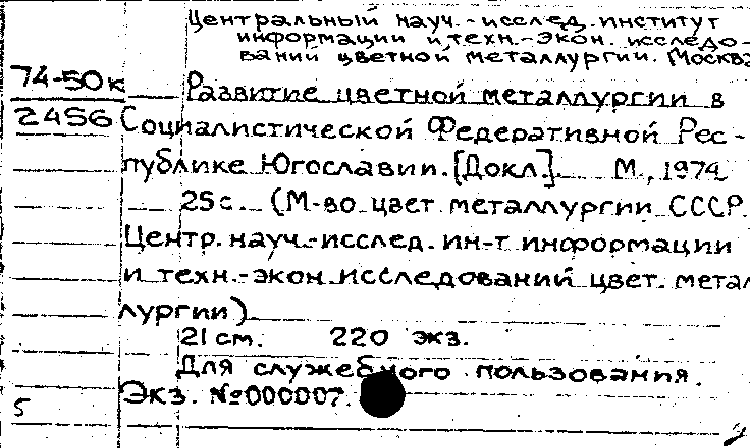 Центральный науч.-исслед. институт
информации и техн.-экон. исследо-
ваний цветной металлургии. Москва
74-50к Развитие цветной металлургии в
2456 Социалистической Федеративной Рес-
публике Югославии. [Докл.]. М., 1974
25с. (М-во цвет. металлургии СССР.
Центр. науч.-исслед. ин-т информации
и техн.-экон. исследований цвет. метал
лургии).
21 см. 220 экз.
Для служебного пользования.
Экз. №000007.
5